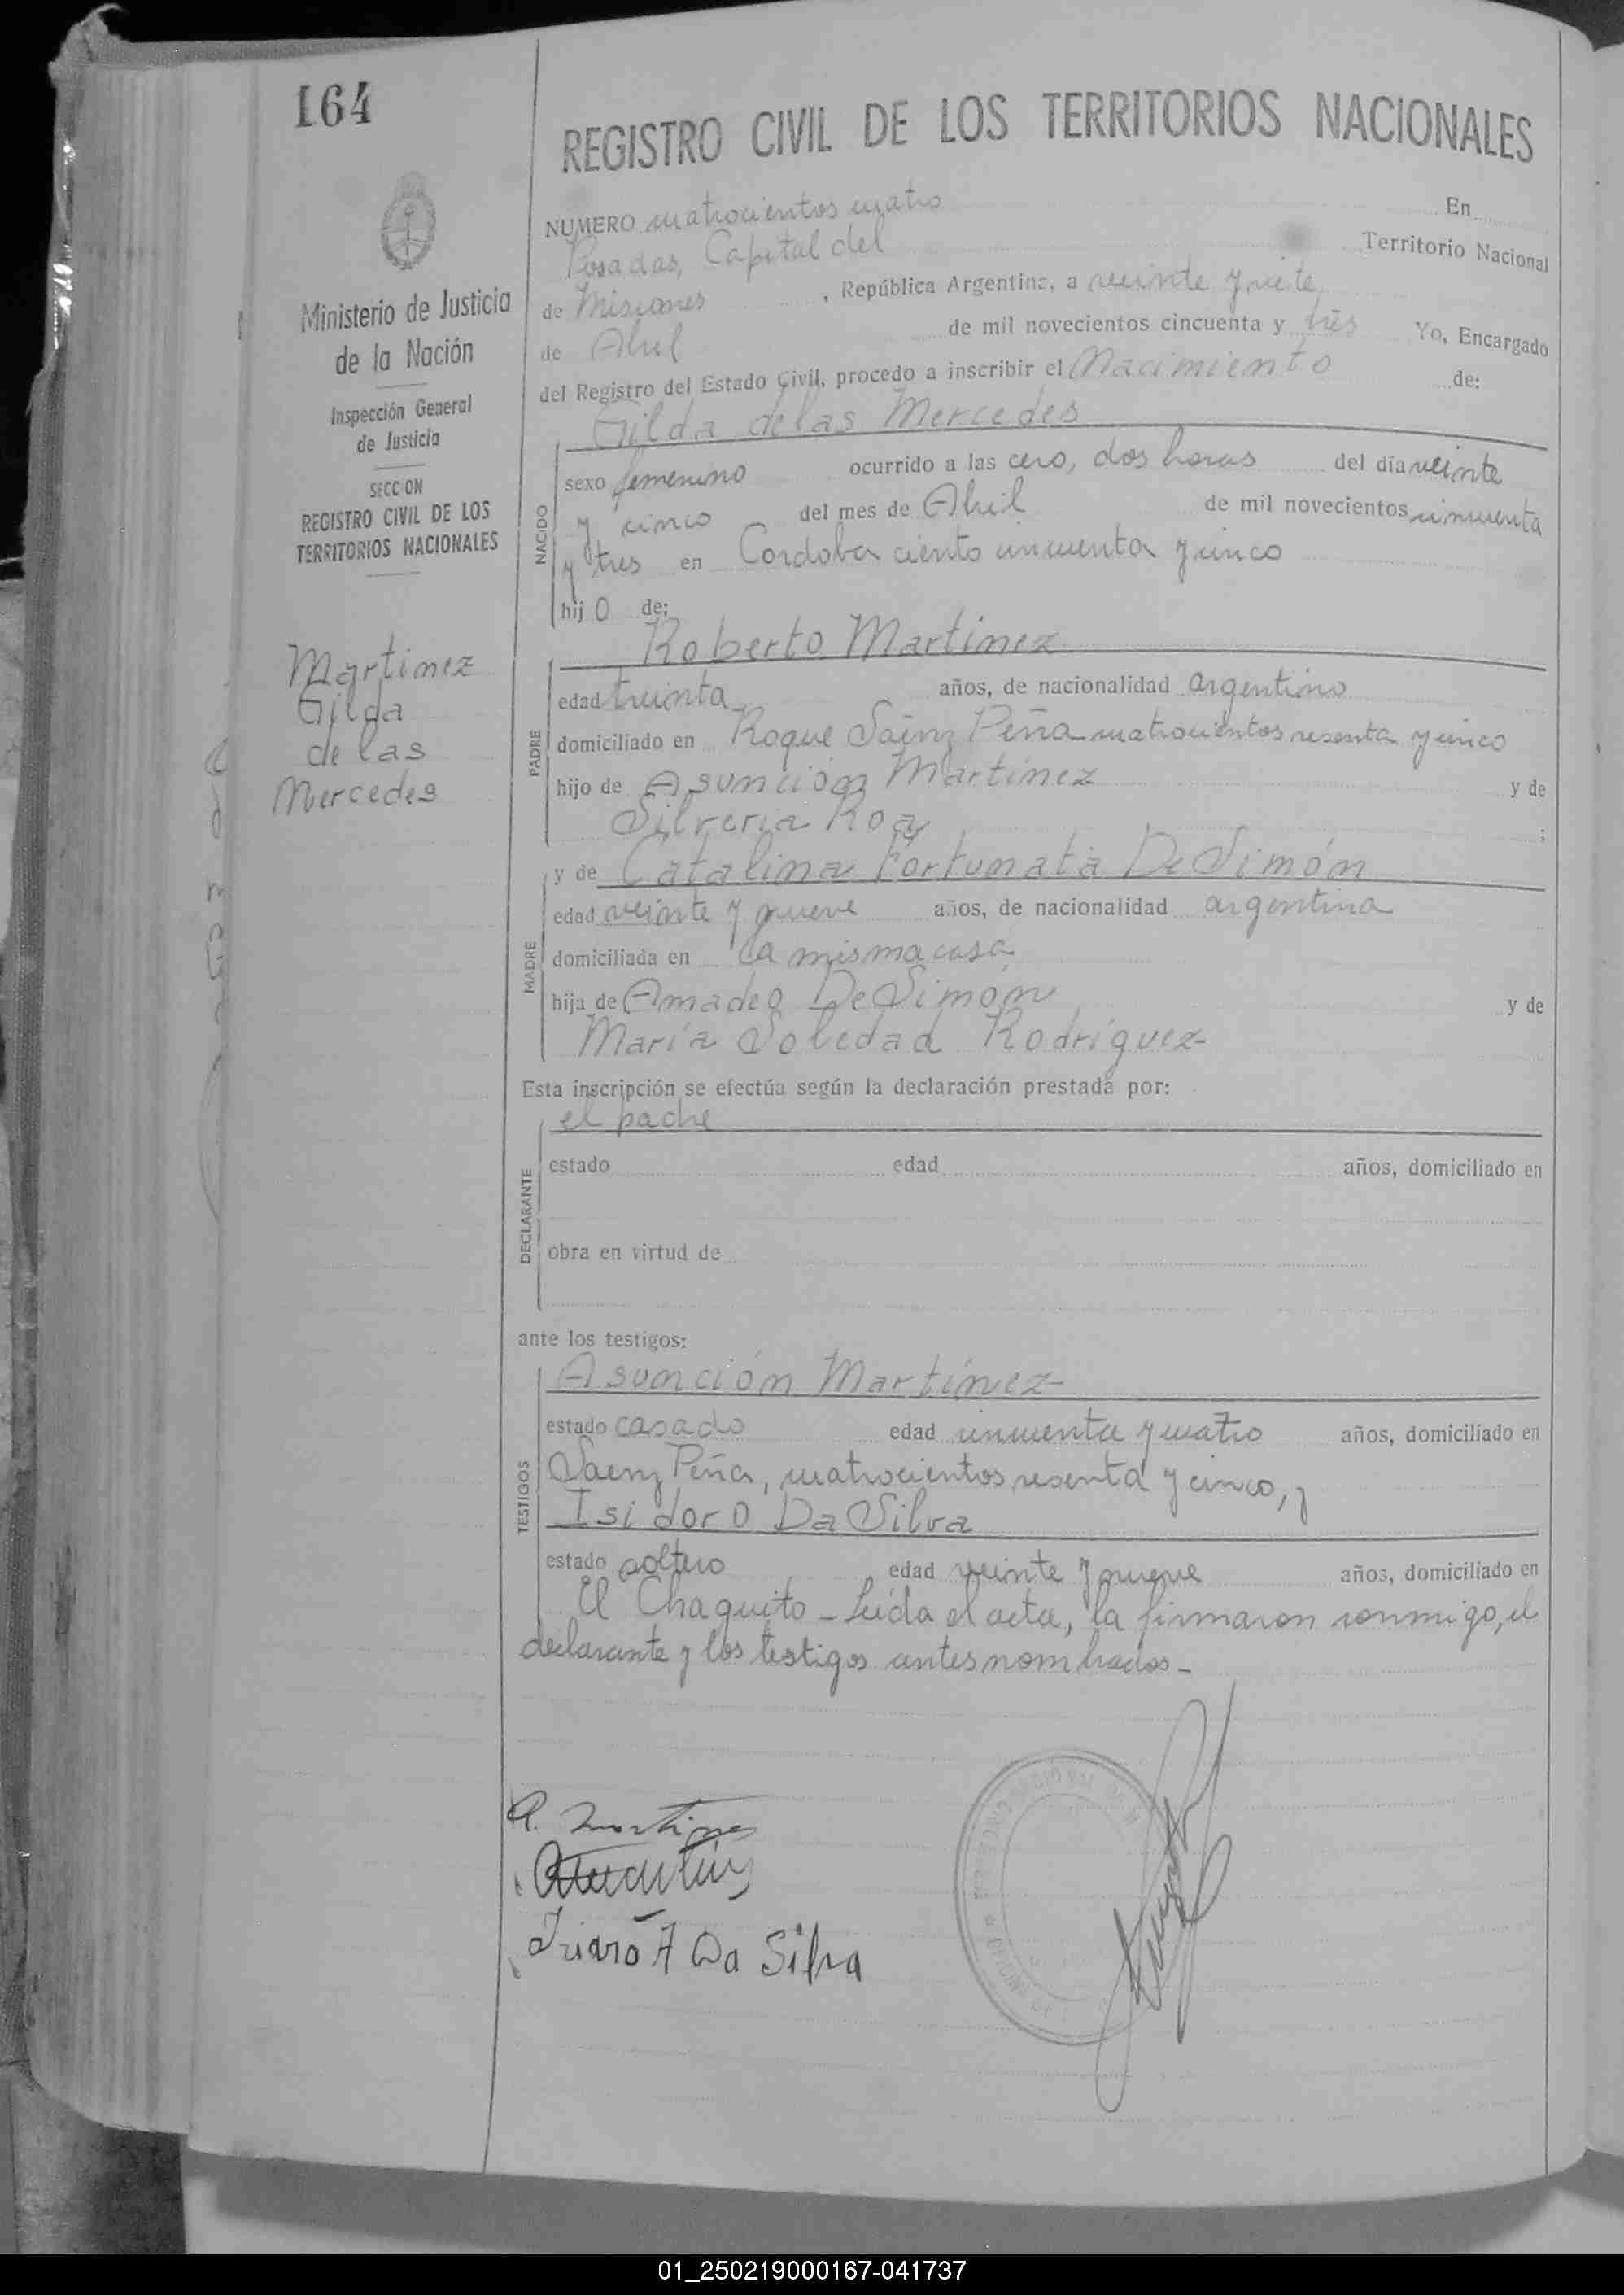 164
REGISTRO CIVIL DE LOS TERRITORIOS NACIONALES
Ministerio de Justicia
de la Nación
Inspección General
de Justicia
SECCION
REGISTRO CIVIL DE LOS
TERRITORIOS NACIONALES
Martinez
Gilda
de las
Mercedes
NUMERO cuatrocientos cuatro En
Posadas, Capital del Territorio Nacional
de Misiones, República Argentina, a veinte y siete
de Abril de mil novecientos cincuenta y tres Yo, Encargado
del Registro del Estado Civil, procedo a inscribir el Nacimiento de:
Gilda de las Mercedes
NACIDO
sexo femenino ocurrido a las cero, dos horas del día veinte
y cinco del mes de Abril de mil novecientos cincuenta
y tres en Cordoba ciento cincuenta y cinco
hij o de:
Roberto Martinez
PADRE
edad treinta años, de nacionalidad argentino
domiciliado en Roque Sáenz Peña cuatrocientos sesenta y cinco
hijo de Asunción Martínez y de
Silveria Roa ;
y de Catalina Fortunata De Simón
MADRE
edad veinte y nueve años, de nacionalidad argentina
domiciliada en la misma casa
hija de Amadeo De Simón y de
María Soledad Rodríguez-
Esta inscripción se efectúa según la declaración prestada por:
el padre
DECLARANTE
estado edad años, domiciliado en
obra en virtud de
ante los testigos:
Asunción Martínez-
TESTIGOS
estado casado edad cincuenta y cuatro años, domiciliado en
Saenz Peña, cuatrocientos sesenta y cinco, y
Isidoro Da Silva
estado soltero edad veinte y nueve años, domiciliado en
El Chaquito - Leída el acta, la firmaron conmigo, el
declarante y los testigos antes nombrados -
A. Martinez
Da Silva
01_250219000167-041737